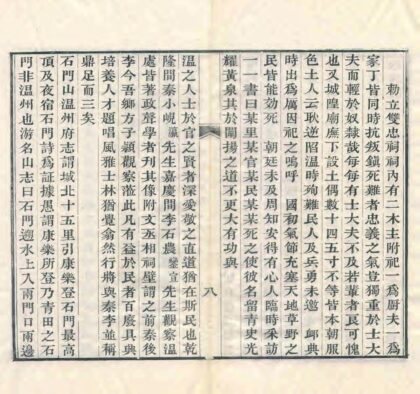 勅立雙忠祠祠內有二木主附祀一爲厨夫一爲
家丁皆同時抗叛鎭死難者忠義之氣豈獨重於士大
夫而輕於奴隸哉每每有士大夫不及若輩者良可愧
也又城隍廟廡下設土偶數十四五寸不等皆本朝服
色土人云耿逆䧟温時殉難民人及兵勇未邀 邺典
時出爲厲因祀之嗚呼 國初氣節充塞天地草野之
民皆能効死 朝廷未及周知安得有心人臨時采訪
一一書曰某里某官某民某某死之使彼名留青史光
耀黃泉其於闡揚之道不更大有功與
八
温之人士於官之賢者深愛敬之直道猶在斯民也乾
隆間秦小峴瀛先生嘉慶間李石農鑾宣先生觀察温
處皆著政聲學者刋其像附文丞相祠壁謂之前秦後
李今吾鄉方子頴觀察蒞此凡有益於民者百廢具興
培養人才題唱風雅士林猶覺翕然行將與秦李並稱
鼎足而三矣
石門山温州府志謂城北十五里引康樂登石門最高
頂及夜宿石門詩爲証據愚謂康樂所登乃青田之石
門非温州也游名山志曰石門遡水上入兩門口雨邊